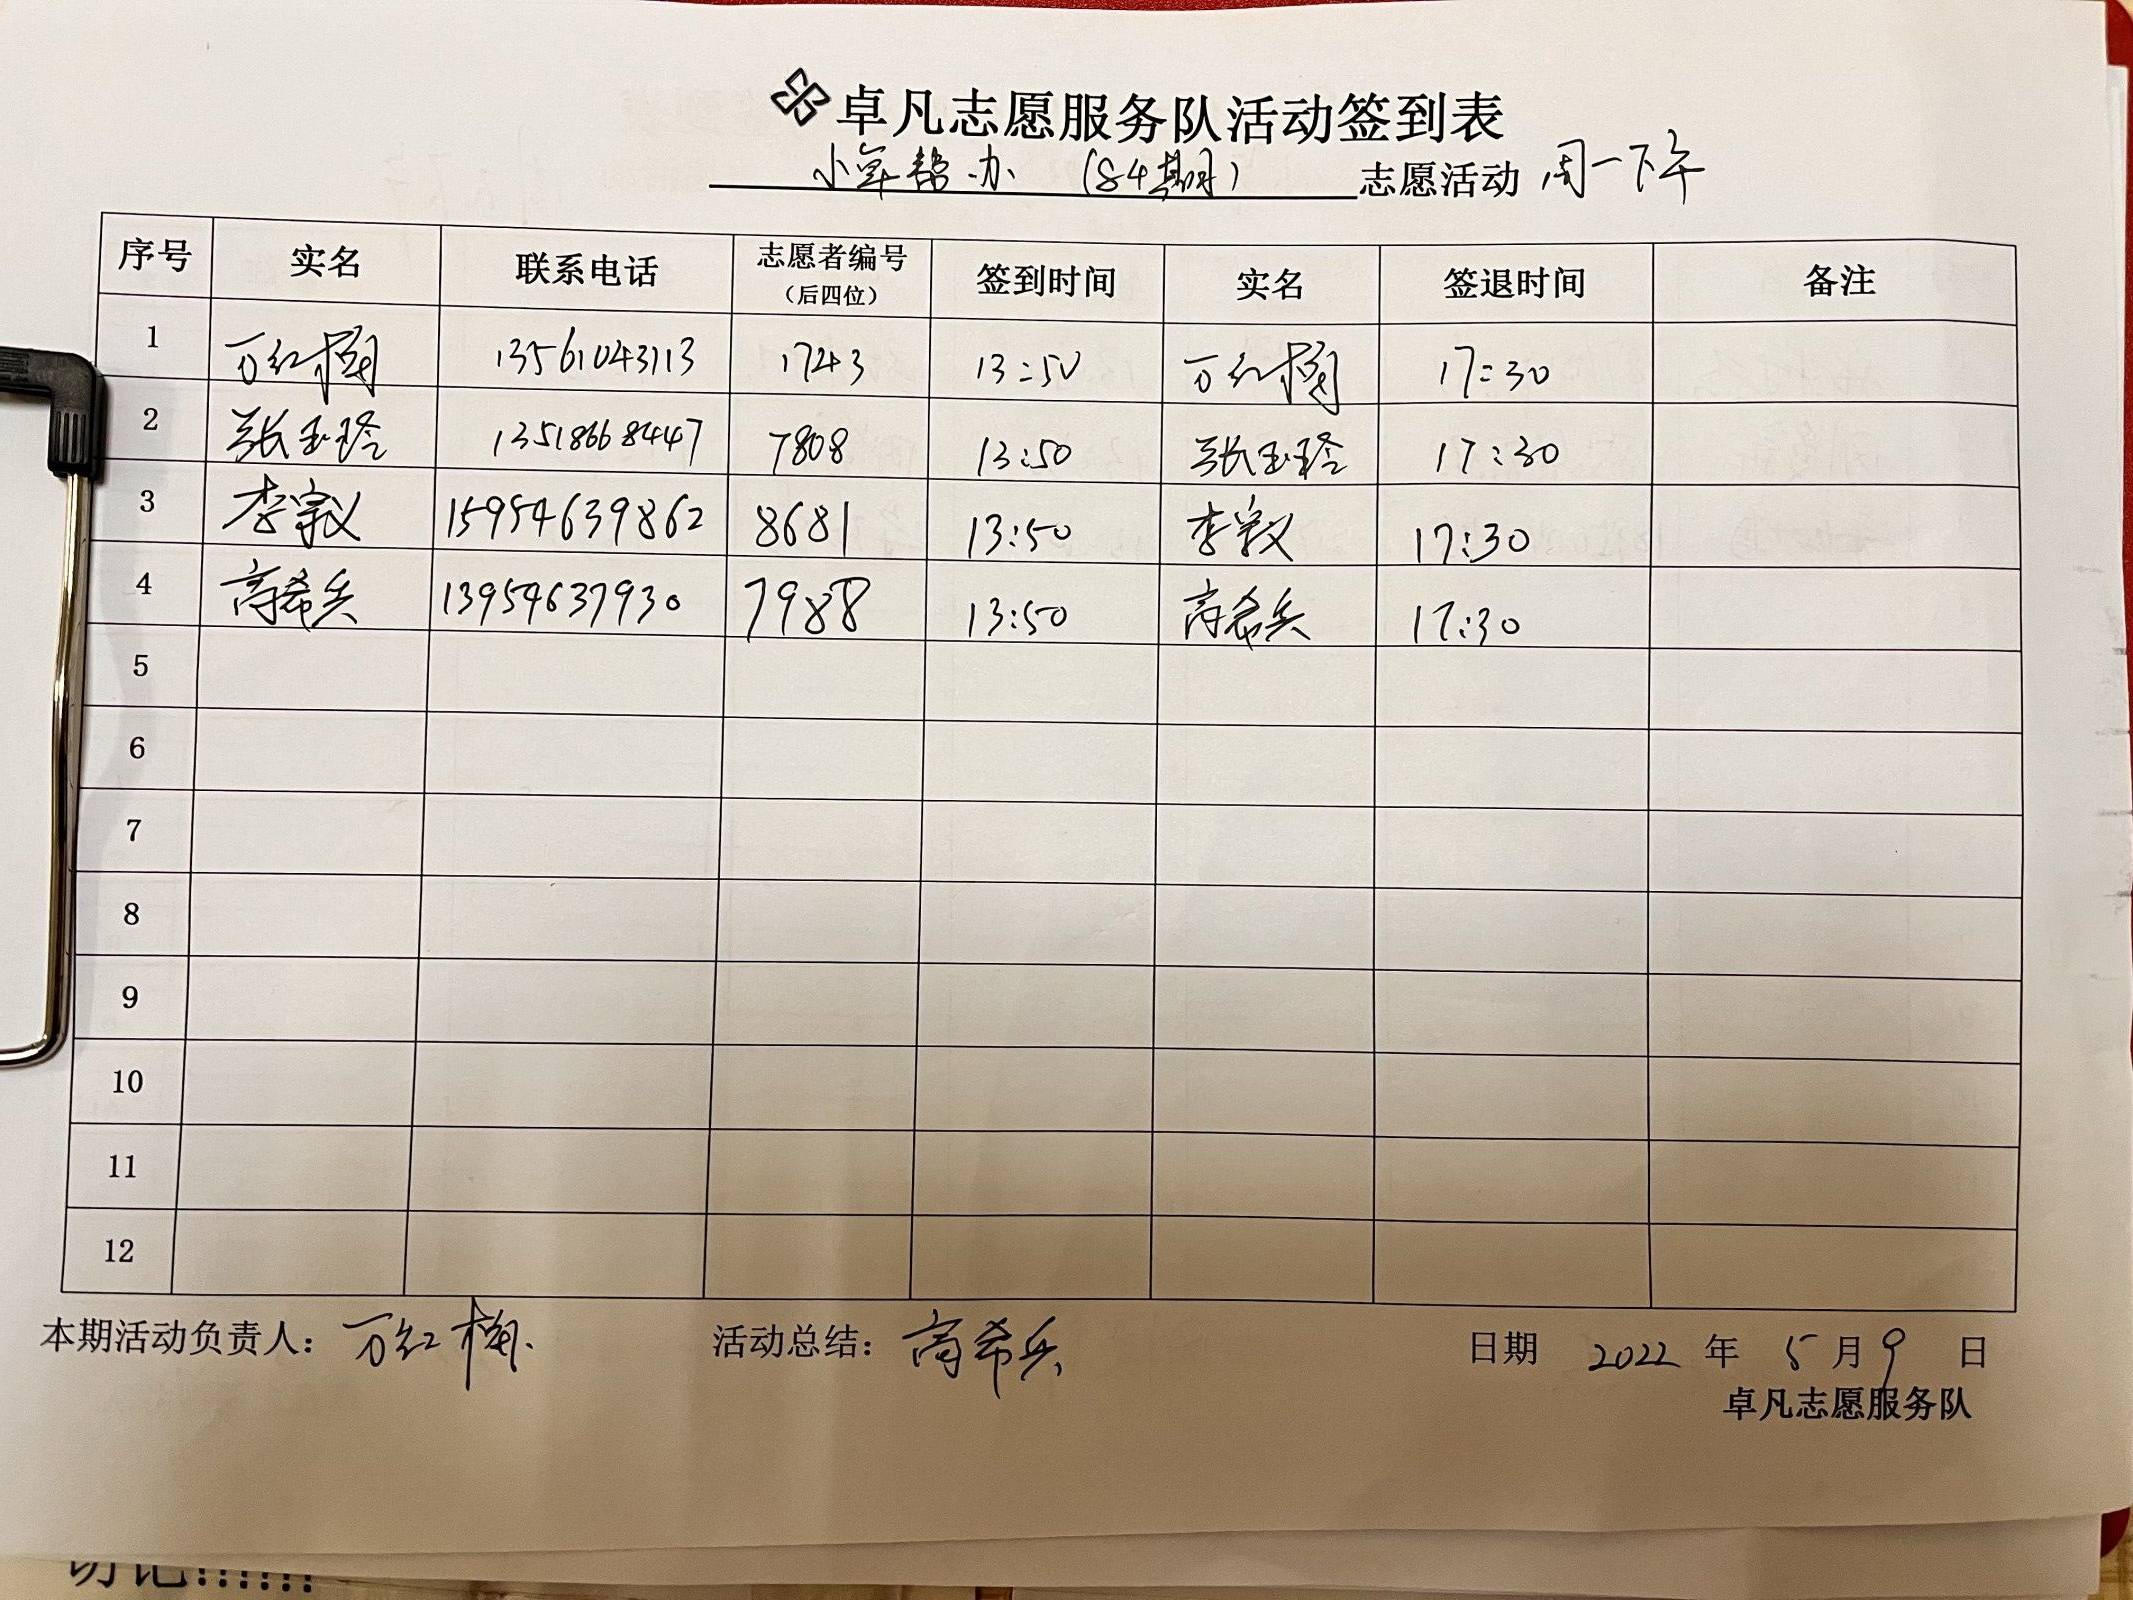 卓凡志愿服务队活动签到表
小单帮办 (84期) 志愿活动 周一下午
序号 实名 联系电话 志愿者编号（后四位） 签到时间 实名 签退时间 备注
1 万红梅 13561043113 1743 13:50 万红梅 17:30
2 张玉玲 13518668447 7808 13:50 张玉玲 17:30
3 李宗义 15954639862 8681 13:50 李宗义 17:30
4 高希兵 13954637930 7988 13:50 高希兵 17:30
5
6
7
8
9
10
11
12
本期活动负责人：万红梅 活动总结：高希兵 日期 2022 年 5 月 9 日
卓凡志愿服务队
切记!!!!!!